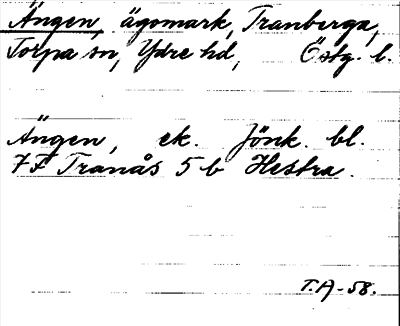 Ängen, ägomark, Tranberga,
Torpa sn, Ydre hd, Östg. l.
Ängen, ek. Jönk. bl.
7F Tranås 5 b Hestra.
T.A-58.